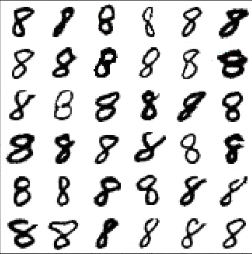 8 8 8 8 8 8
8 8 8 8 8 8
8 8 8 8 8 8
8 8 8 8 8 8
8 8 8 8 8 8
8 8 8 8 8 8